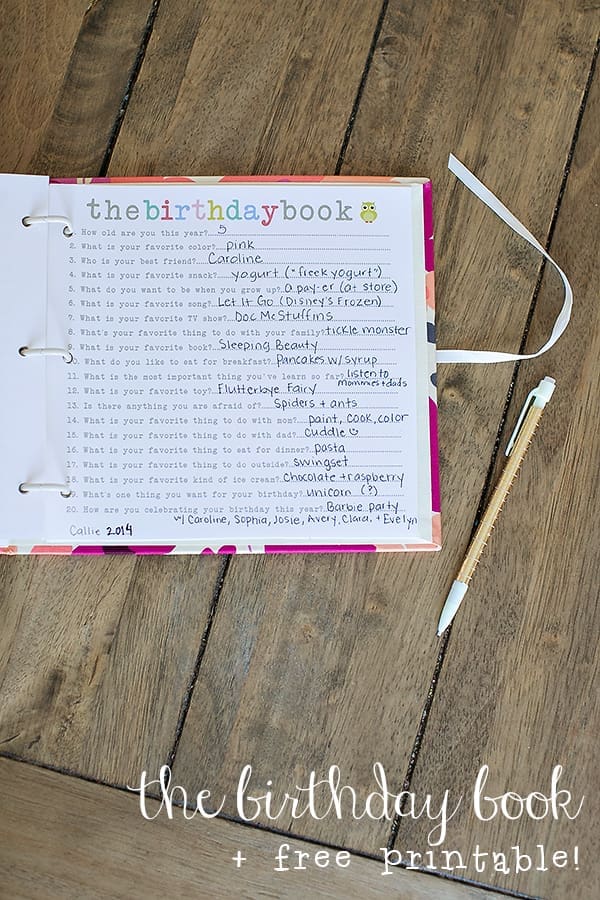 thebirthdaybook
1. How old are you this year? 5
2. What is your favorite color? pink
3. Who is your best friend? Caroline
4. What is your favorite snack? yogurt ("freek yogurt")
5. What do you want to be when you grow up? a pay-er (at store)
6. What is your favorite song? Let It Go (Disney's Frozen)
7. What is your favorite TV show? Doc McStuffins
8. What's your favorite thing to do with your family? tickle monster
9. What is your favorite book? Sleeping Beauty
10. What do you like to eat for breakfast? Pancakes w/syrup
11. What is the most important thing you've learn so far? listen to
mommies + dads
12. What is your favorite toy? Flutterbye Fairy
13. Is there anything you are afraid of? Spiders + ants
14. What's your favorite thing to do with mom? paint, cook, color
15. What is your favorite thing to do with dad? cuddle
16. What is your favorite thing to eat for dinner? pasta
17. What is your favorite thing to do outside? swingset
18. What is your favorite kind of ice cream? chocolate + raspberry
19. What's one thing you want for your birthday? unicorn (?)
20. How are you celebrating your birthday this year? Barbie party
w/ Caroline, Sophia, Josie, Avery, Clara, + Evelyn
Callie 2014
the birthday book
+ free printable!